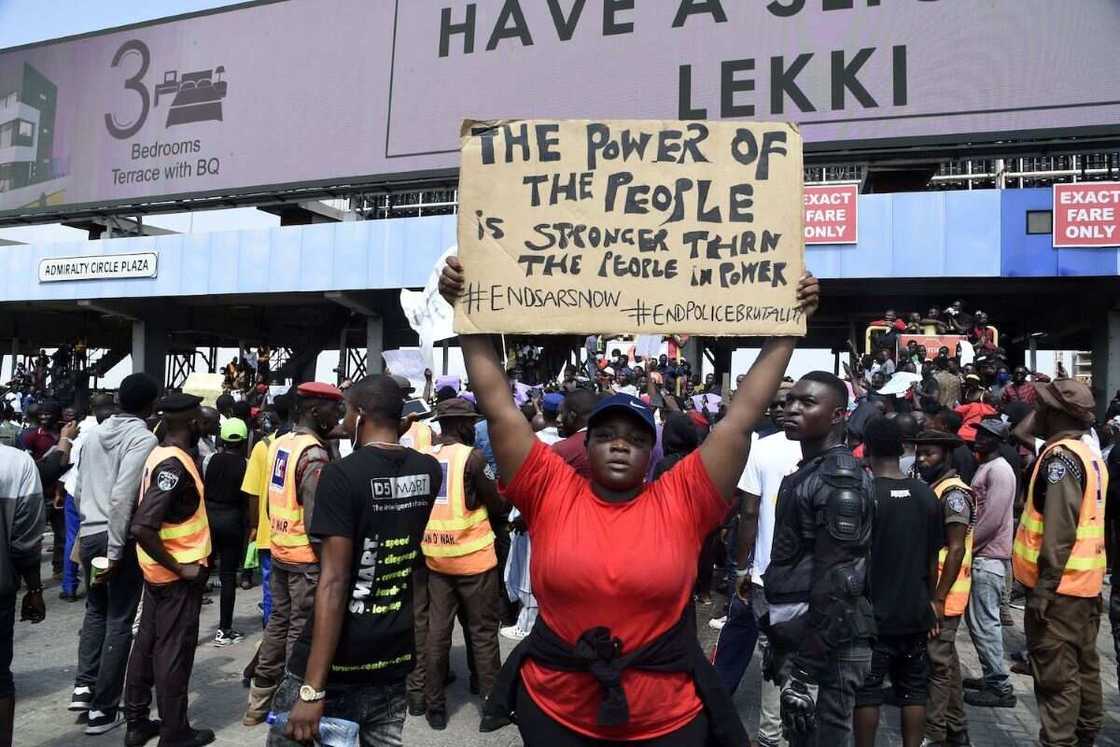 HAVE A
LEKKI
3
Bedrooms
Terrace with BQ
ADMIRALTY CIRCLE PLAZA
EXACT
FARE
ONLY
EXACT
FARE
ONLY
THE POWER OF
THE PEOPLE
is STRONGER THAN
THE PEOPLE iN POWER
#ENDSARSNOW #ENDPOLICEBRUTALITY
D5MART
SMART